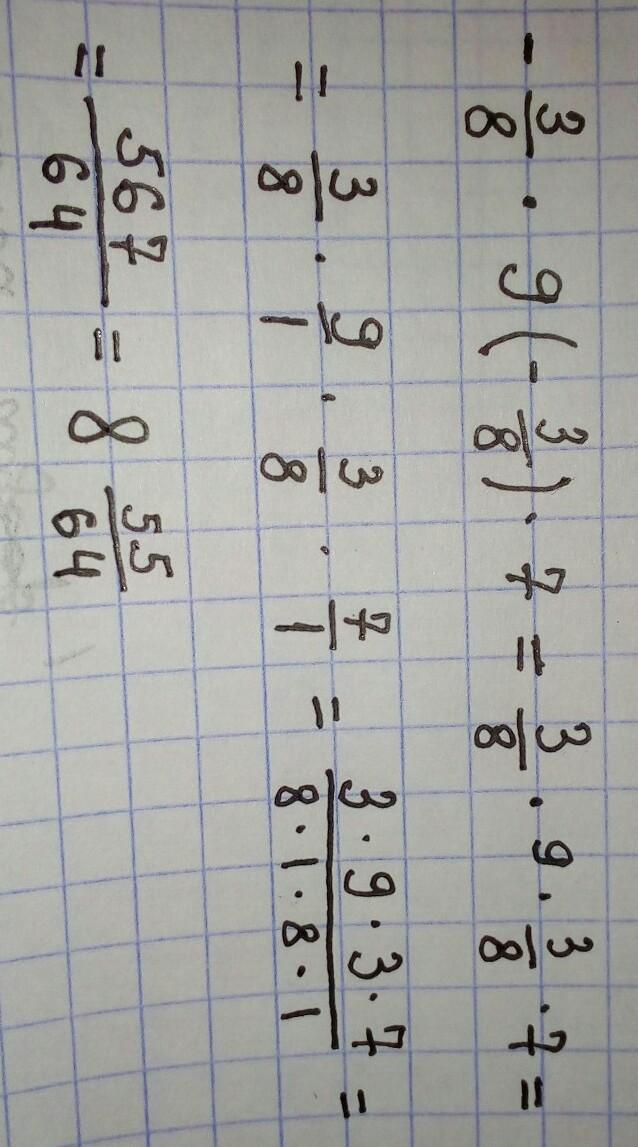 - 3/8 · 9(- 3/8) · 7 = 3/8 · 9 · 3/8 · 7 =
= 3/8 · 9/1 · 3/8 · 7/1 = (3 · 9 · 3 · 7)/(8 · 1 · 8 · 1) =
= 567/64 = 8 55/64